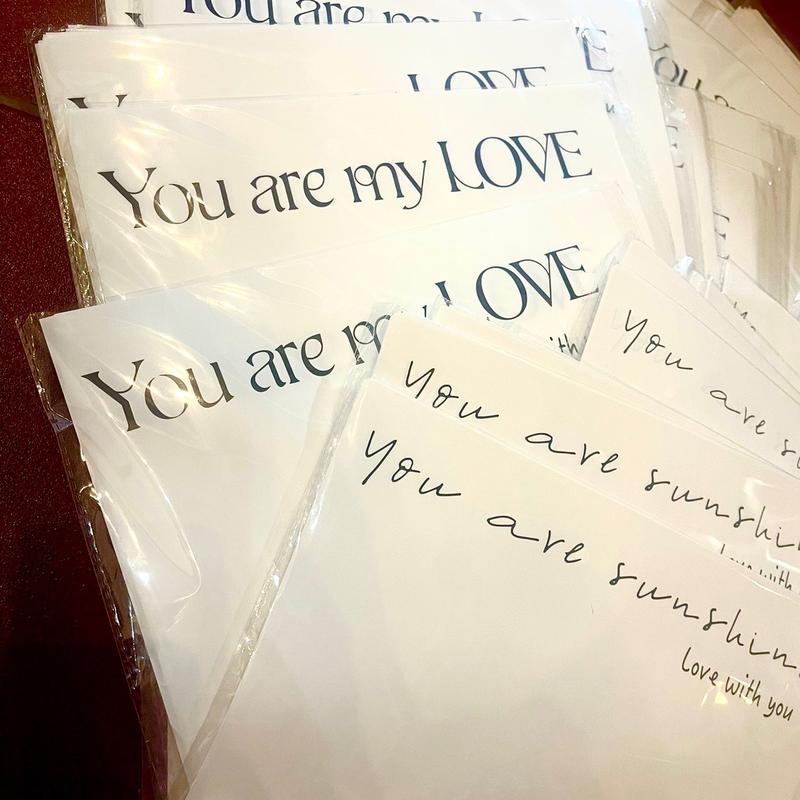 You are my LO
LOVE
You are my LOVE
You are my LOVE
with
you are s
you are sunshin
love with
you are sunshin
love with you